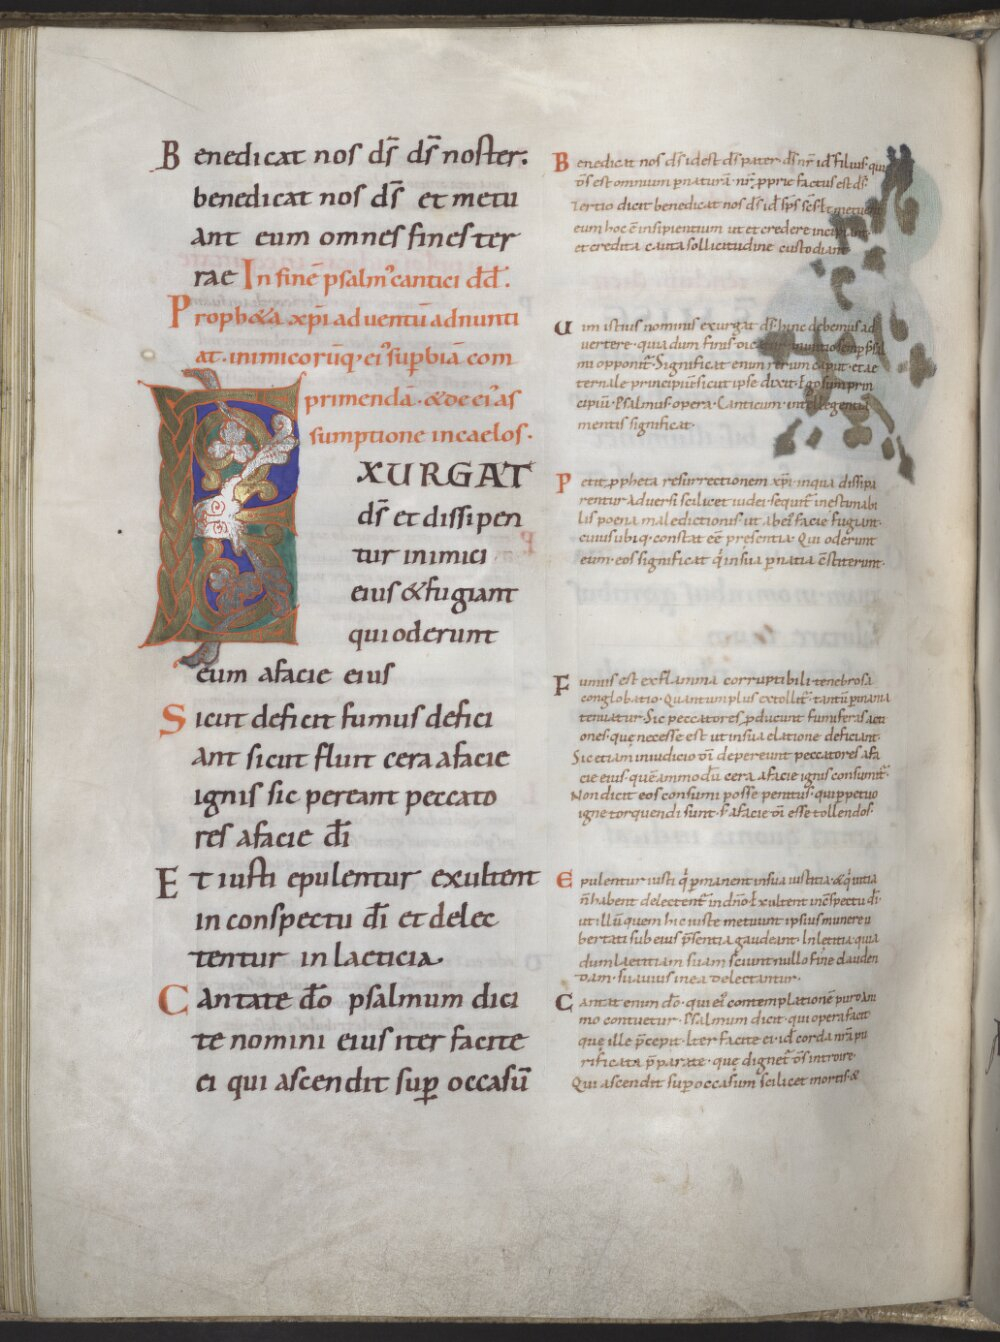 Benedicat nos ds̄ ds̄ noster.
benedicat nos ds̄ et metu
ant eum omnes fines ter
rae In finē psalm' cantici dd̄.
Propheta xp̄i adventū adnunti
at. inimicorūq; ei' supbiā com
primendā · & de ei' as
sumptione in caelos.
EXURGAT
ds̄ et dissipen
tur inimici
eius & fugiant
qui oderunt
eum a facie eius
Sicut deficit fumus defici
ant sicut fluit cera a facie
ignis sic pereant peccato
res a facie dī
Et iusti epulentur exultent
in conspectu dī et delec
tentur in laeticia.
Cantate dō psalmum dici
te nomini eius iter facite
ei qui ascendit sup occasū
Benedicat nos ds̄ id est ds̄ pater · ds̄ nr̄ id ē filius qui
ōs est omnium p naturā · nr̄ pprie factus est ds̄.
Tertio dicit benedicat nos ds̄ id sp̄s sc̄s & metuent
eum hoc ē insipientium ut et credere incipiant
et credita cauta sollicitudine custodiant
Cum istius nominis exurgat ds̄ hunc debemus ad
vertere · quia dum finis psal
mi opponit̄ · Significat enim rerum caput · et ae
ternale principiū sicut ipse dixit · Ego sum prin
cipiū · Psalmus opera · Canticum intellegentiā
mentis significat ·
Petit ppheta resurrectionem xp̄i in qua dissipa
rentur adversi scilicet iudei sequit̄ inestimabi
lis poena maledictionis · ut ab ei' facie fugiant ·
cuius ubiq; constat eē presentia · Qui oderunt
eum · eos significat q̄ in sua p natia c̄stiterunt ·
Fumus est ex flamma corruptibili tenebrosa
conglobatio · Quantum plus extollit̄ · tantū p inania
tenuatur · Sic peccatores pducunt fumiferas acti
ones · quę necesse est ut in sua elatione deficiant ·
Sic etiam in iudicio dī depereunt peccatores a fa
cie eius · quēammodū cera a facie ignis consumit̄ ·
Non dicit eos consumi posse penitus · qui ppetuo
igne torquendi sunt · s̄ a facie dī esse tollendos ·
Epulentur iusti q̄ pmanent in sua iustitia · & q̄ initia
n̄ habent delectent̄ in dn̄o & exultent in c̄spectu dī ·
ut illū quem hic iuste metuunt ipsius munere li
bertati sub eius p̄sentia gaudeant · In letitia quia
dum laetitiam suam sciunt nullo fine clauden
dam · suavius in ea delectantur ·
Cantat enim dō · qui ei' contemplationē puro ani
mo contuetur · Psalmum dicit · qui opera facit
quę ille p̄cepit · Iter facite ei · id corda nr̄a pu
rificata p̄parate · quę dignet̄ ds̄ introire ·
Qui ascendit sup occasum scilicet mortis · &